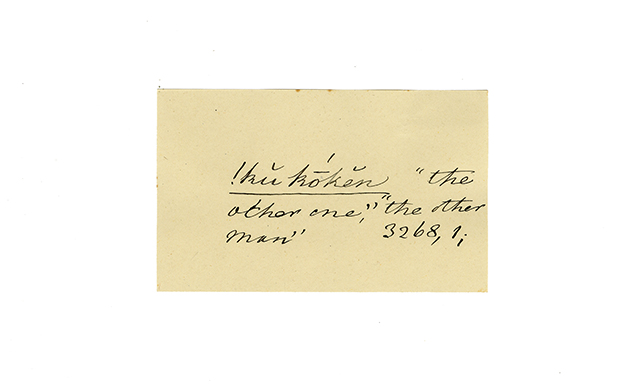 !kŭ kṓkĕn "the
other one," "the other
man" 3268, 1;